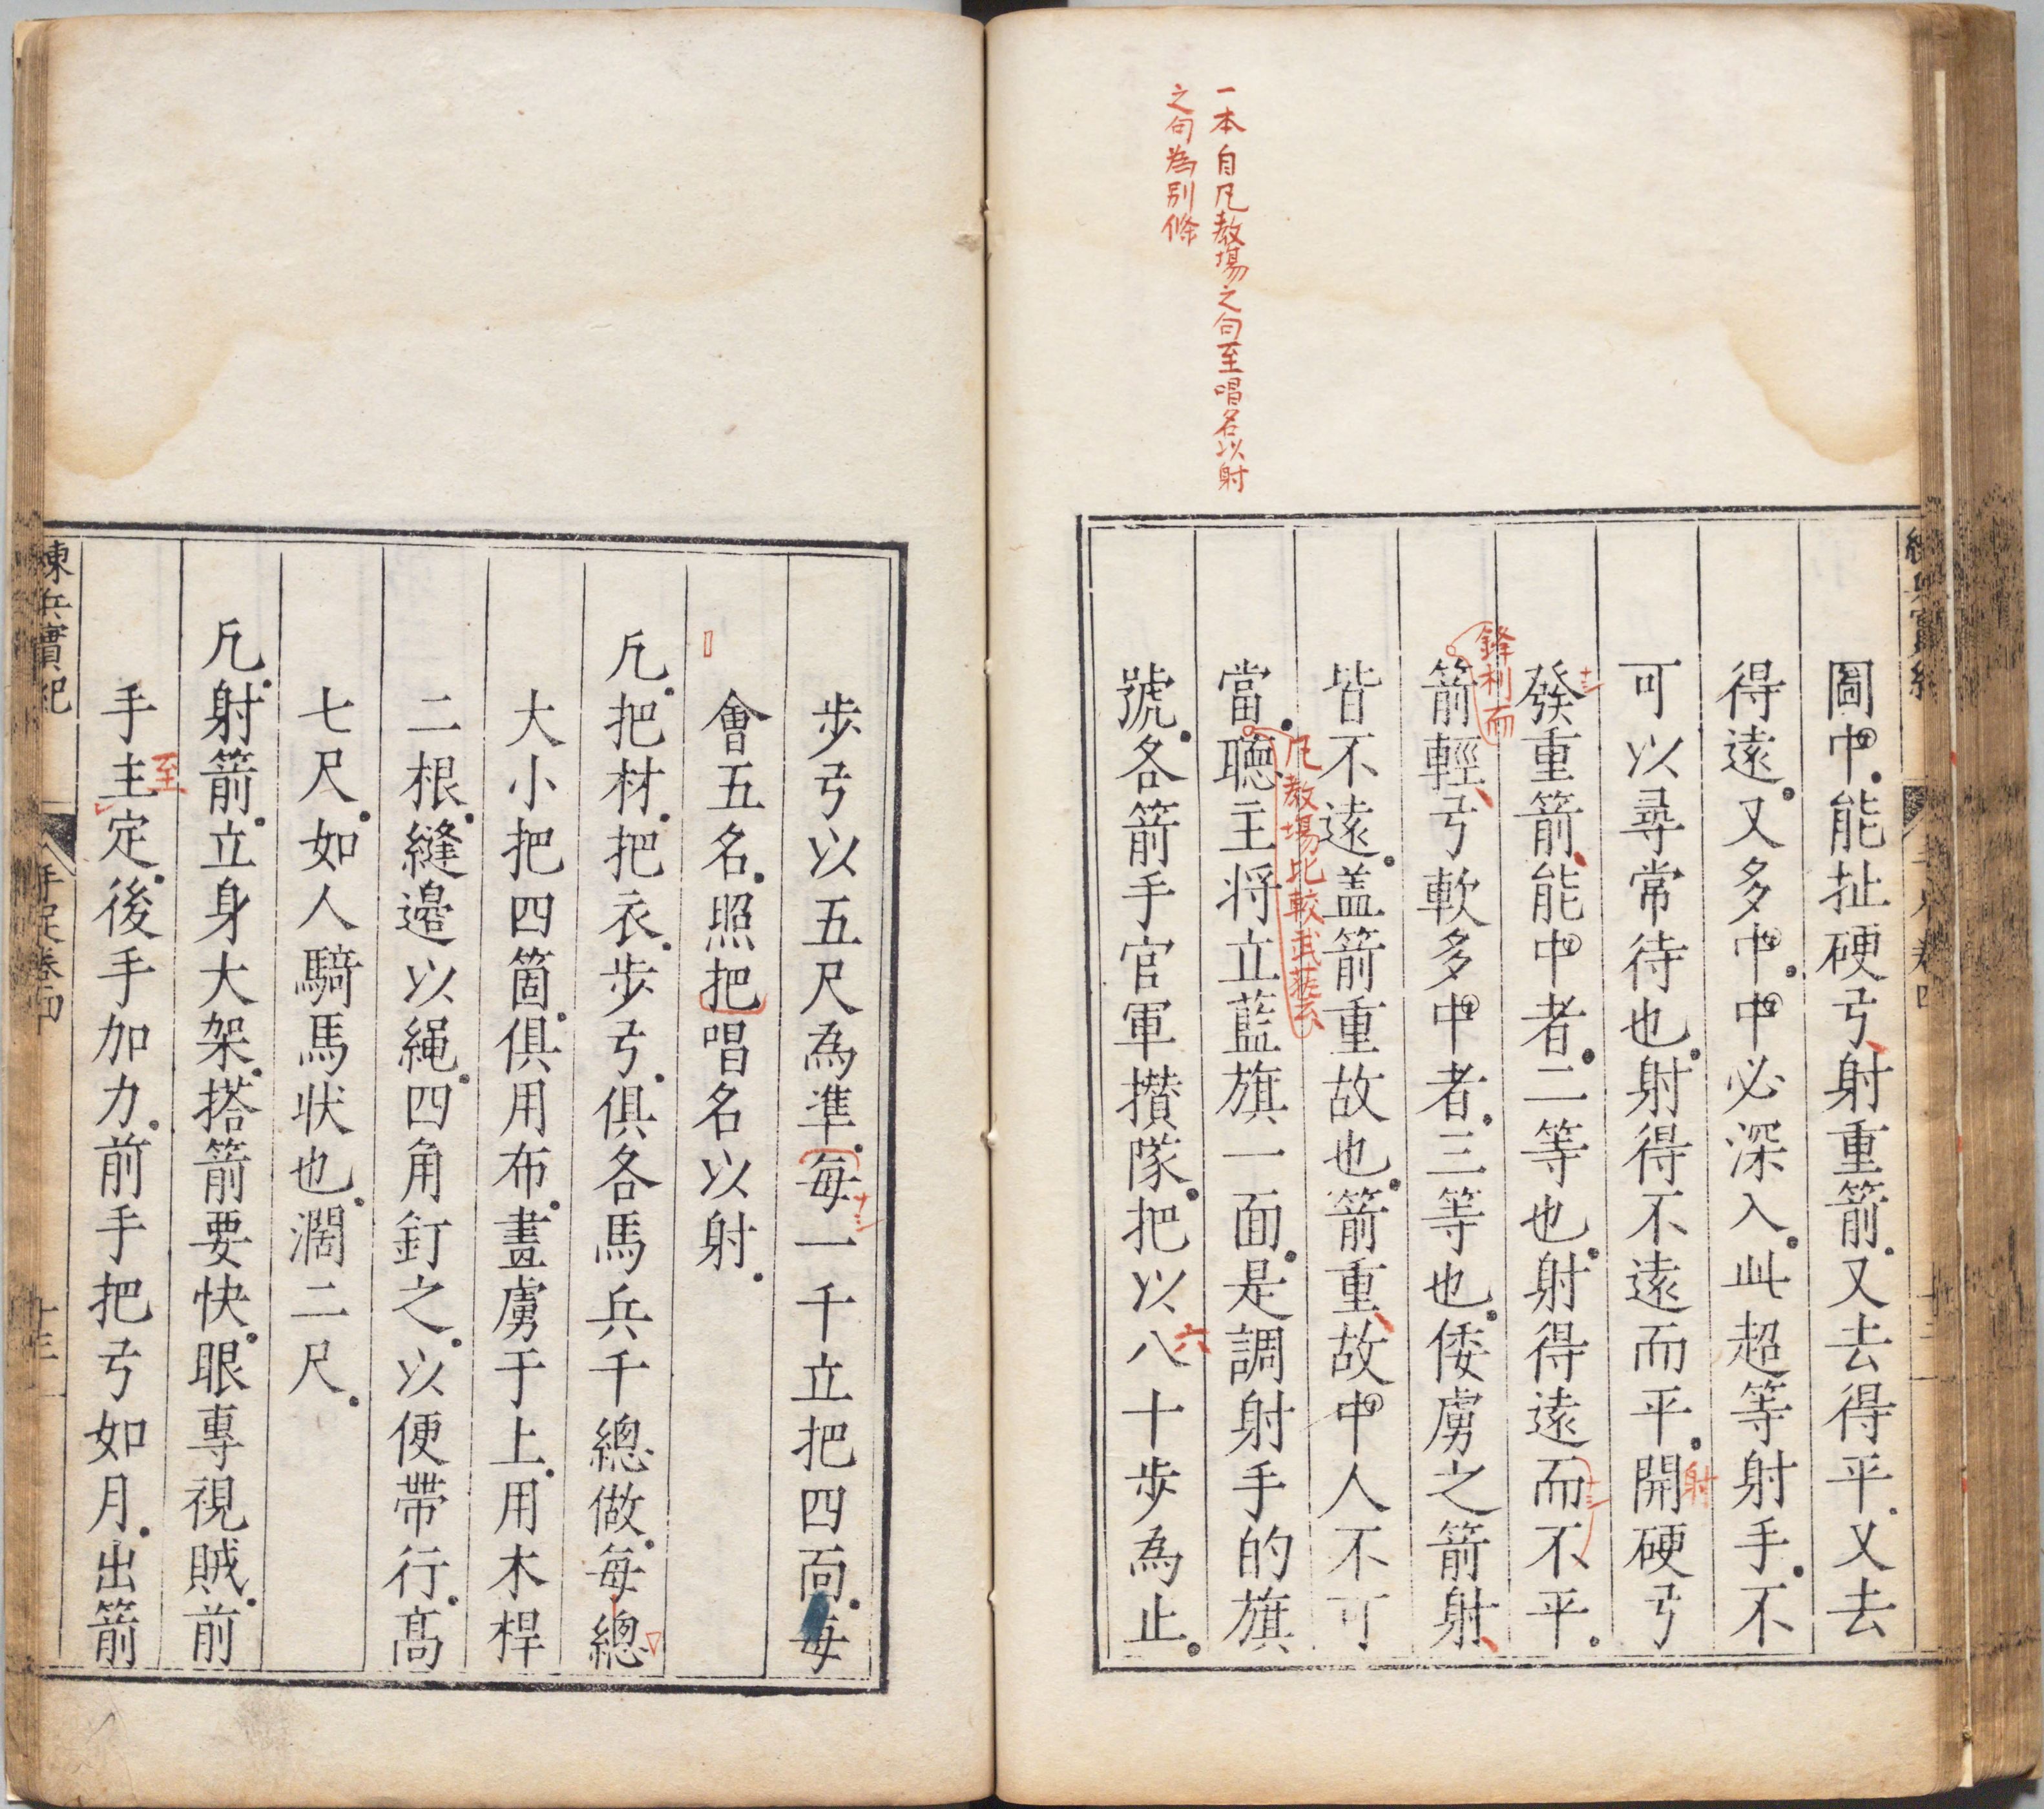 一本自凡教場之句至唱名以射
之句為別條
圖中能扯硬弓射重箭又去得平又去
得遠又多中中必深入此超等射手不
可以尋常待也射得不遠而平開硬弓
射
發重箭能中者二等也射得遠而不平
鋒利而
箭輕弓軟多中者三等也倭虜之箭射
皆不遠盖箭重故也箭重故中人不可
凡教場比較武藝云
當聽主將立藍旗一面是調射手的旗
號各箭手官軍攅隊把以八十步為止
六
步弓以五尺為準每一千立把四面每
會五名照把唱名以射
凡把材把衣步弓俱各馬兵千總做每總
大小把四箇俱用布畫虜于上用木桿
二根縫邊以繩四角釘之以便帶行高
七尺如人騎馬状也濶二尺
凡射箭立身大架搭箭要快眼專視賊前
手主定後手加力前手把弓如月出箭
至
練兵實紀
卷四